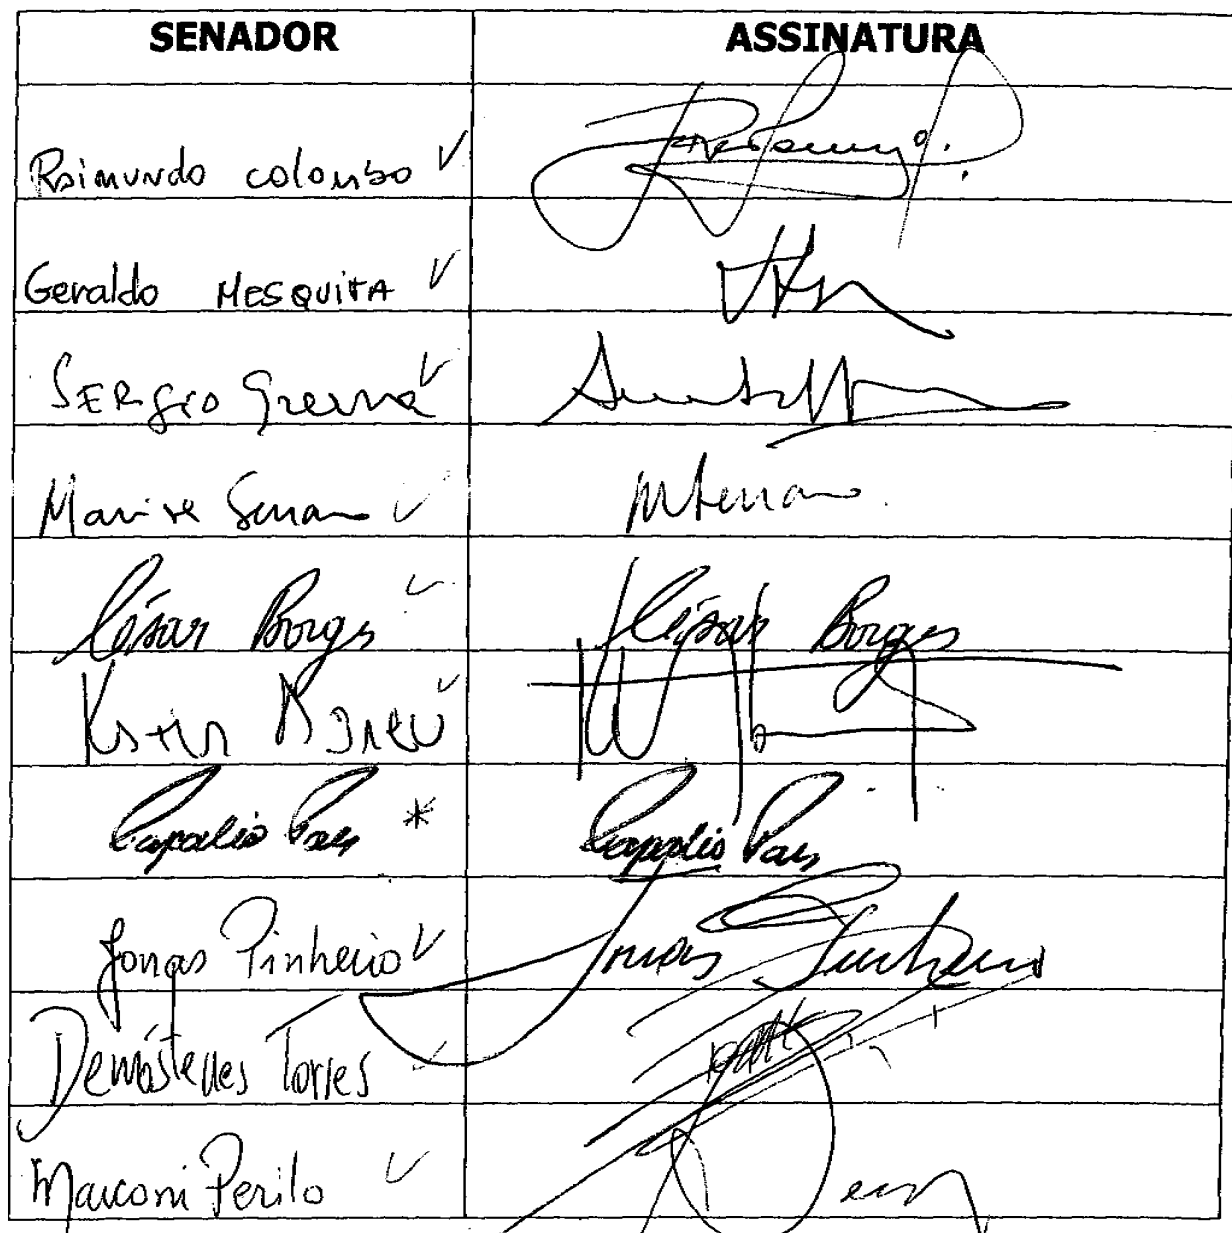 SENADOR ASSINATURA
Raimundo colombo
Geraldo MESQUITA
SERgio Guerra
Marisa Serrano MSerrano
César Borges César Borges
Katia Abreu
Papaléo Paes Papaléo Paes
Jonas Pinheiro Jonas Pinheiro
Demóstenes Torres
Marconi Perilo